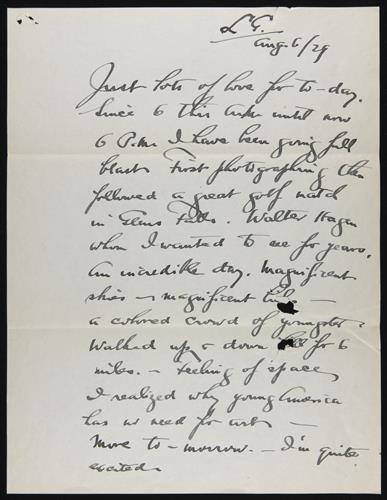 L. G.
Aug. 6/29
Just lots of love for to-day.
Since 6 this A.M. until now
6 P.M. I have been going full
blast. First photographing then
followed a great golf match
in Glens Falls. Walter Hagen
whom I wanted to see for years.
An incredible day. Magnificent
skies — magnificent —
a colored crowd of youngsters
Walked up & down for 6
miles. — Feeling of space
I realized why young America
has no need for art —
More to-morrow. — I'm quite
excited